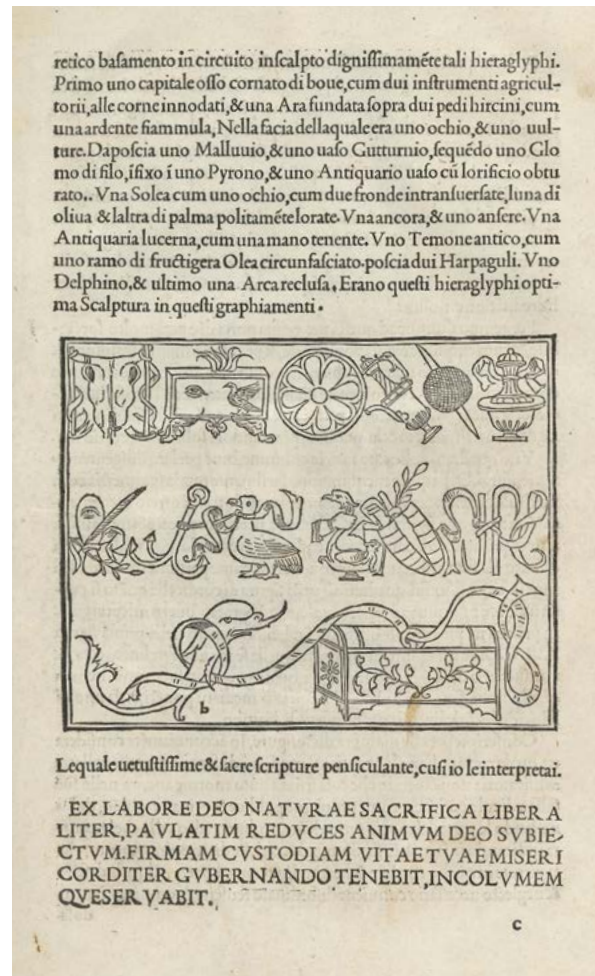 retico basamento in circuito inscalpto dignissimamẽte tali hieraglyphi.
Primo uno capitale osso cornato di boue, cum dui instrumenti agricul-
torii, alle corne innodati, & una Ara fundata sopra dui pedi hircini, cum
una ardente fiammula, Nella facia dellaquale era uno ochio, & uno uul-
ture. Daposcia uno Malluuio, & uno uaso Gutturnio, sequẽdo uno Glo
mo di filo, ĩfixo ĩ uno Pyrono, & uno Antiquario uaso cũ lorificio obtu
rato.. Vna Solea cum uno ochio, cum due fronde intransuersate, luna di
oliua & laltra di palma politamẽte lorate. Vna ancora, & uno ansere. Vna
Antiquaria lucerna, cum una mano tenente. Vno Temone antico, cum
uno ramo di fructigera Olea circunfasciato. poscia dui Harpaguli. Vno
Delphino, & ultimo una Arca reclusa. Erano questi hieraglyphi opti-
ma Scalptura in questi graphiamenti.
b
Lequale uetustissime & sacre scripture pensiculante, cusi io le interpretai.
EX LABORE DEO NATVRAE SACRIFICA LIBERA
LITER, PAVLATIM REDVCES ANIMVM DEO SVBIE-
CTVM. FIRMAM CVSTODIAM VITAE TVAE MISERI
CORDITER GVBERNANDO TENEBIT, INCOLVMEM
QVE SERVABIT.
c